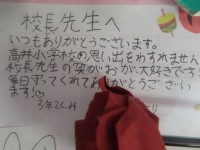 校長先生へ
いつもありがとうございます。
高井小学校の思い出をわすれません
校長先生の笑がおが大好きです
毎日守ってくれてありがとうござい
ます!
3年2くみ